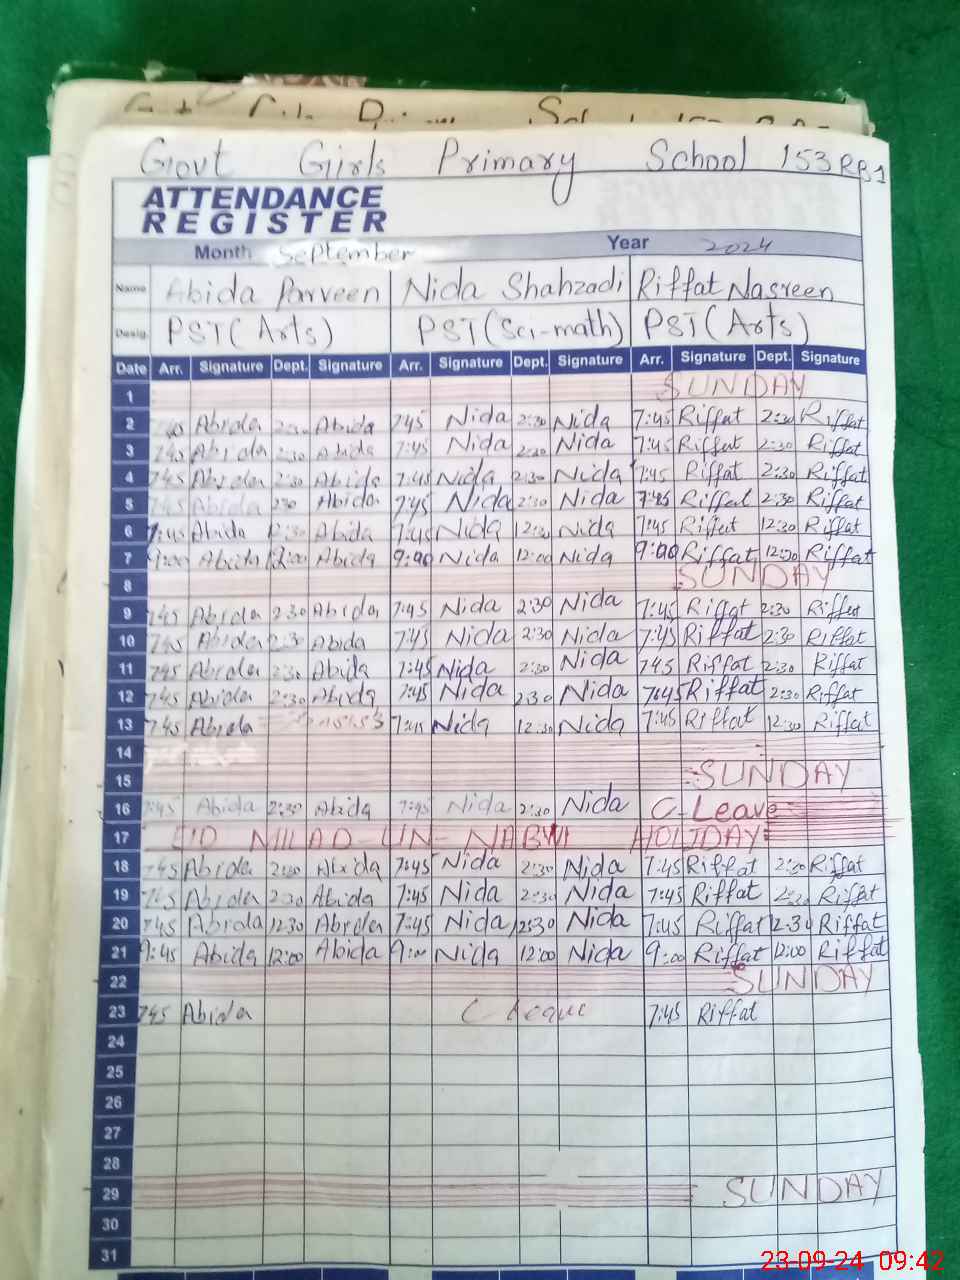 Govt Girls Primary School 153 RB1
ATTENDANCE
REGISTER
Month September Year 2024
Name Abida Parveen Nida Shahzadi Riffat Nasreen
Desig. PST (Arts) PST (Sci-math) PST (Arts)
Date Arr. Signature Dept. Signature Arr. Signature Dept. Signature Arr. Signature Dept. Signature
1 SUNDAY
2 7:45 Abida 2:30 Abida 7:45 Nida 2:30 Nida 7:45 Riffat 2:30 Riffat
3 7:45 Abida 2:30 Abida 7:45 Nida 2:30 Nida 7:45 Riffat 2:30 Riffat
4 7:45 Abida 2:30 Abida 7:45 Nida 2:30 Nida 7:45 Riffat 2:30 Riffat
5 7:45 Abida 2:30 Abida 7:45 Nida 2:30 Nida 7:45 Riffat 2:30 Riffat
6 7:45 Abida 12:30 Abida 7:45 Nida 12:30 Nida 7:45 Riffat 12:30 Riffat
7 9:00 Abida 12:00 Abida 9:00 Nida 12:00 Nida 9:00 Riffat Riffat
8 SUNDAY
9 7:45 Abida 2:30 Abida 7:45 Nida 2:30 Nida 7:45 Riffat 2:30 Riffat
10 7:45 Abida 2:30 Abida 7:45 Nida 2:30 Nida 7:45 Riffat 2:30 Riffat
11 7:45 Abida 2:30 Abida 7:45 Nida 2:30 Nida 7:45 Riffat 2:30 Riffat
12 7:45 Abida 2:30 Abida 7:45 Nida 2:30 Nida 7:45 Riffat 2:30 Riffat
13 7:45 Abida 7:45 Nida 12:30 Nida 7:45 Riffat 12:30 Riffat
14
15 SUNDAY
16 7:45 Abida 2:30 Abida 7:45 Nida 2:30 Nida C-Leave
17 EID MILAD-UN-NABWI HOLIDAY
18 7:45 Abida 2:30 Abida 7:45 Nida 2:30 Nida 7:45 Riffat 2:30 Riffat
19 7:45 Abida 2:30 Abida 7:45 Nida 2:30 Nida 7:45 Riffat 2:30 Riffat
20 7:45 Abida 12:30 Abida 7:45 Nida 12:30 Nida 7:45 Riffat 12:30 Riffat
21 9:45 Abida 12:00 Abida 9:00 Nida 12:00 Nida 9:00 Riffat 12:00 Riffat
22 SUNDAY
23 7:45 Abida C leave 7:45 Riffat
24
25
26
27
28
29 SUNDAY
30
31
23-09-24 09:42